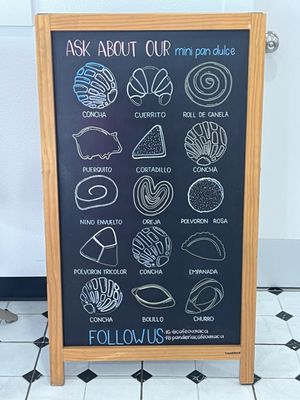 ASK ABOUT OUR mini pan dulce
CONCHA CUERRITO ROLL DE CANELA
PUERQUITO CORTADILLO CONCHA
NINO ENVUELTO OREJA POLVORON ROSA
POLVORON TRICOLOR CONCHA EMPANADA
CONCHA BOLILLO CHURRO
FOLLOW US